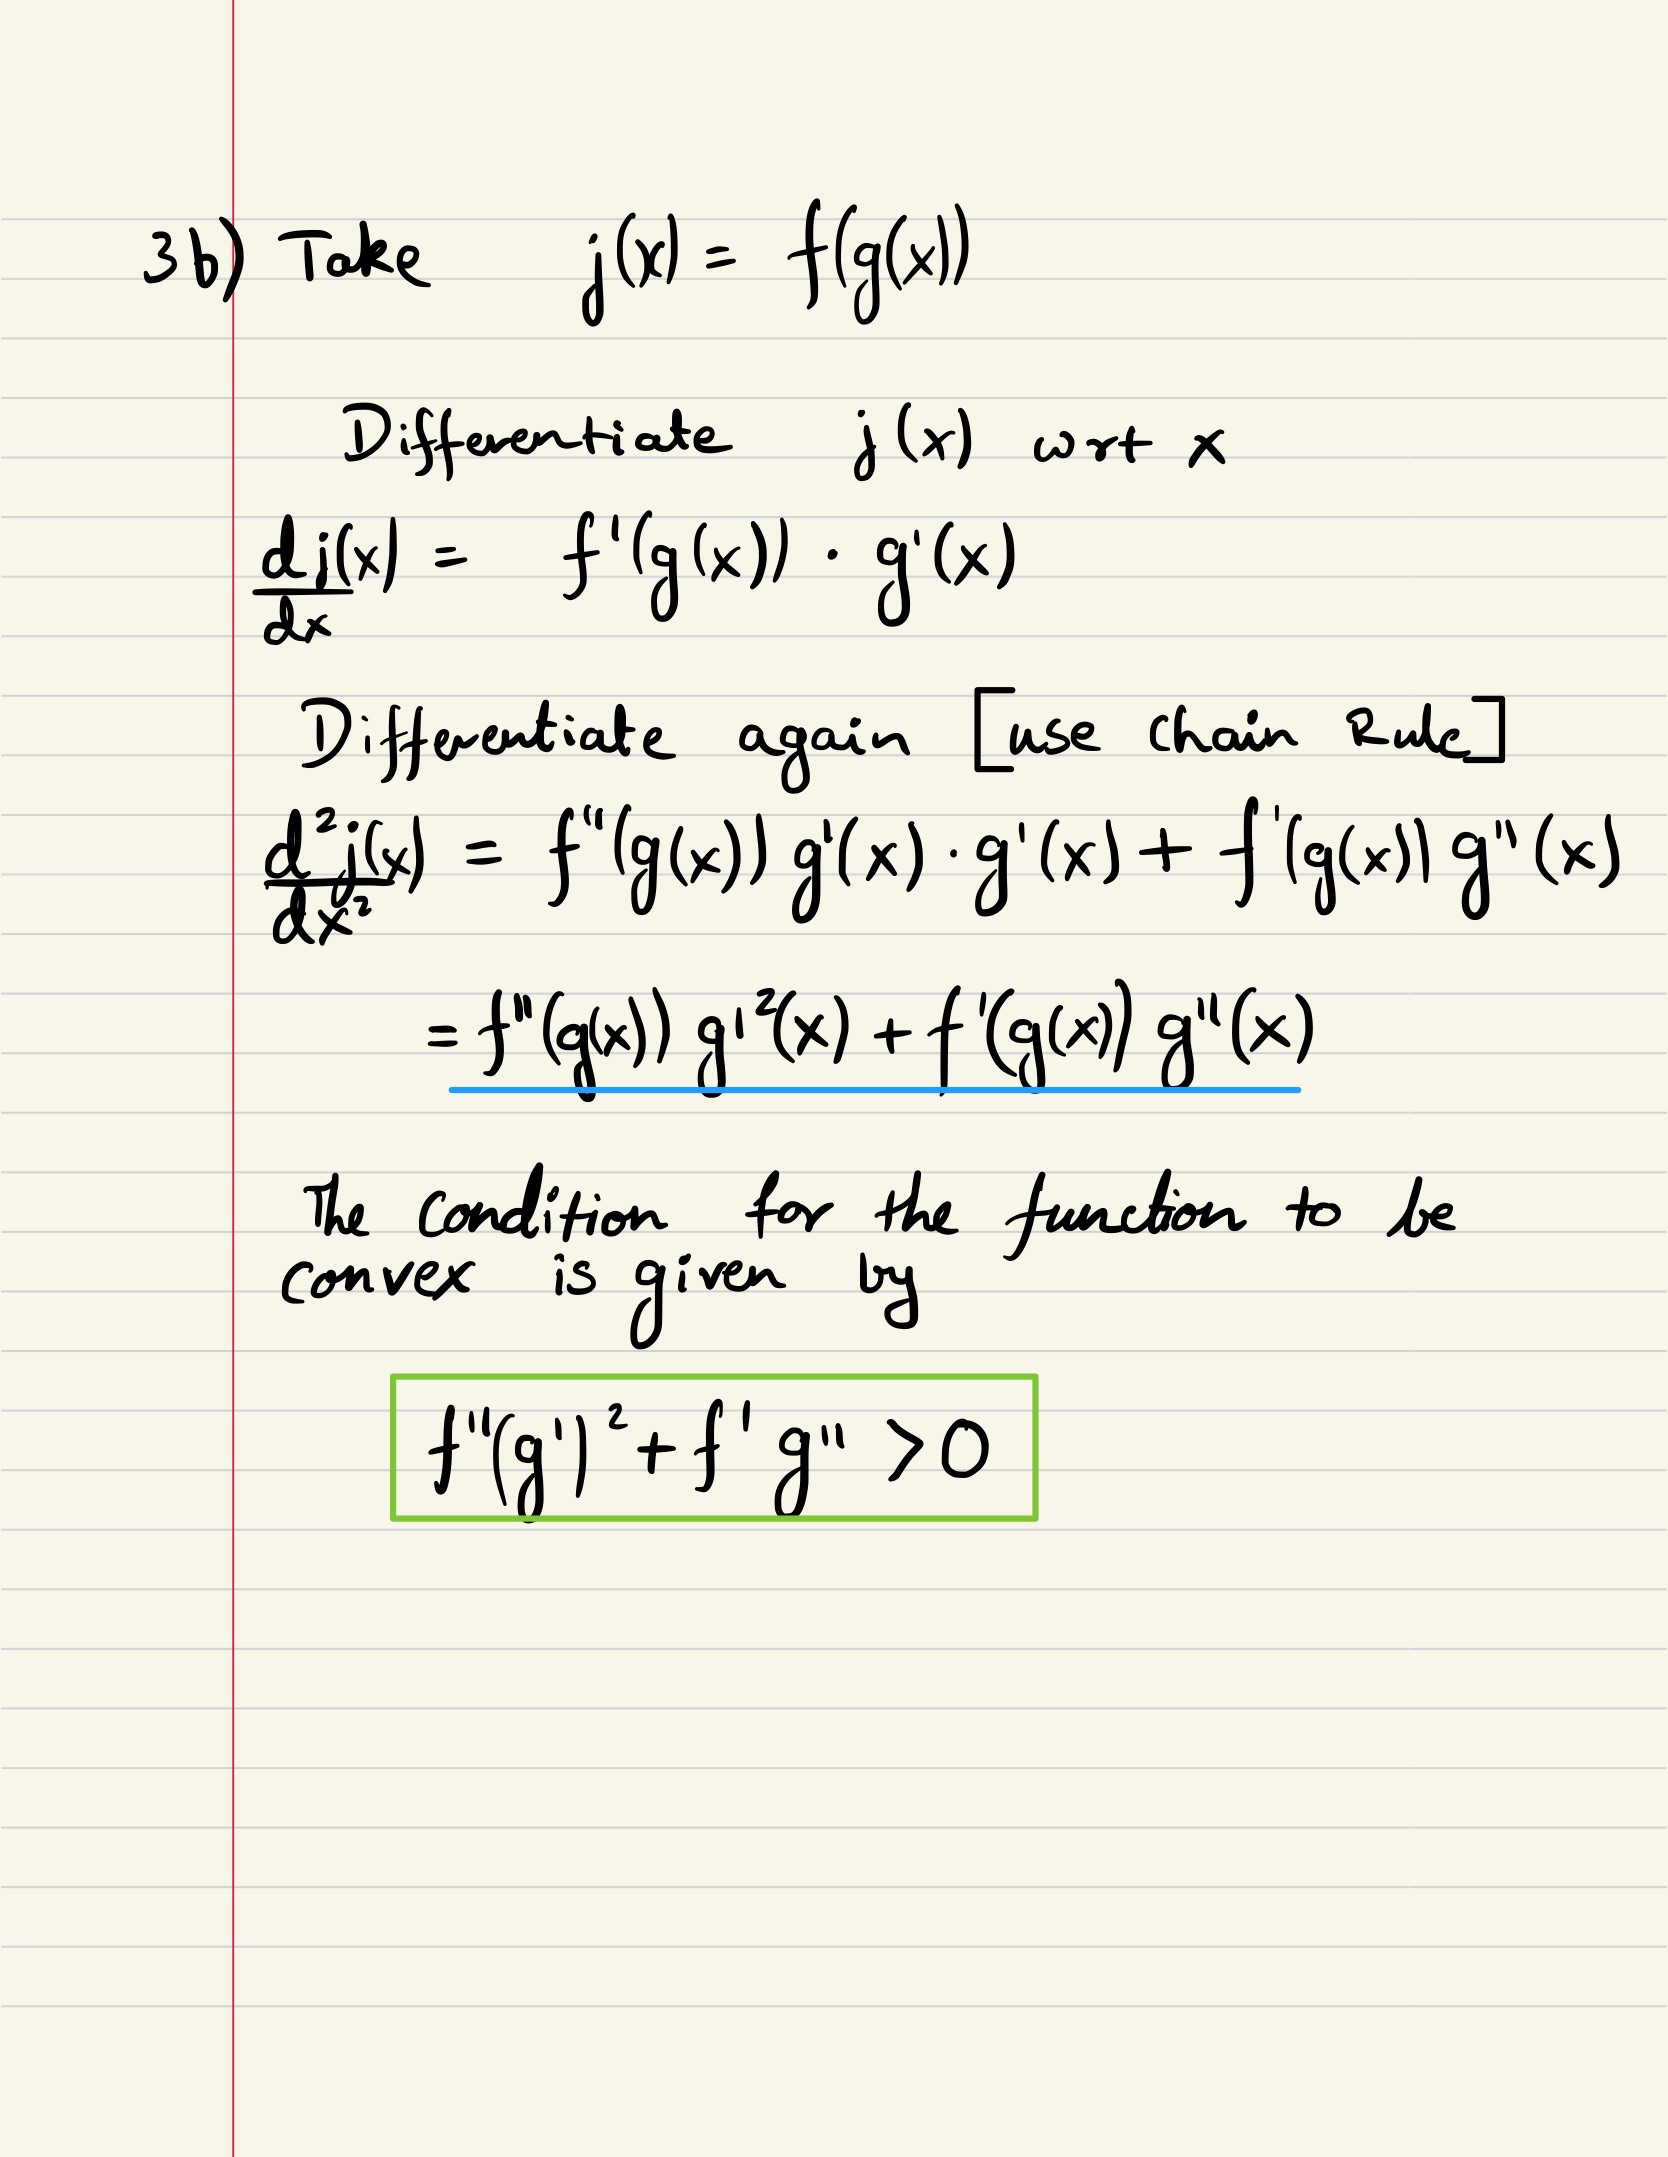 3b) Take j(x) = f(g(x))
Differentiate j(x) wrt x
dj(x)/dx = f'(g(x)) · g'(x)
Differentiate again [use Chain Rule]
d²j(x)/dx² = f''(g(x)) g'(x) · g'(x) + f'(g(x)) g''(x)
= f''(g(x)) g'²(x) + f'(g(x)) g''(x)
The condition for the function to be
convex is given by
f''(g')² + f' g'' > 0